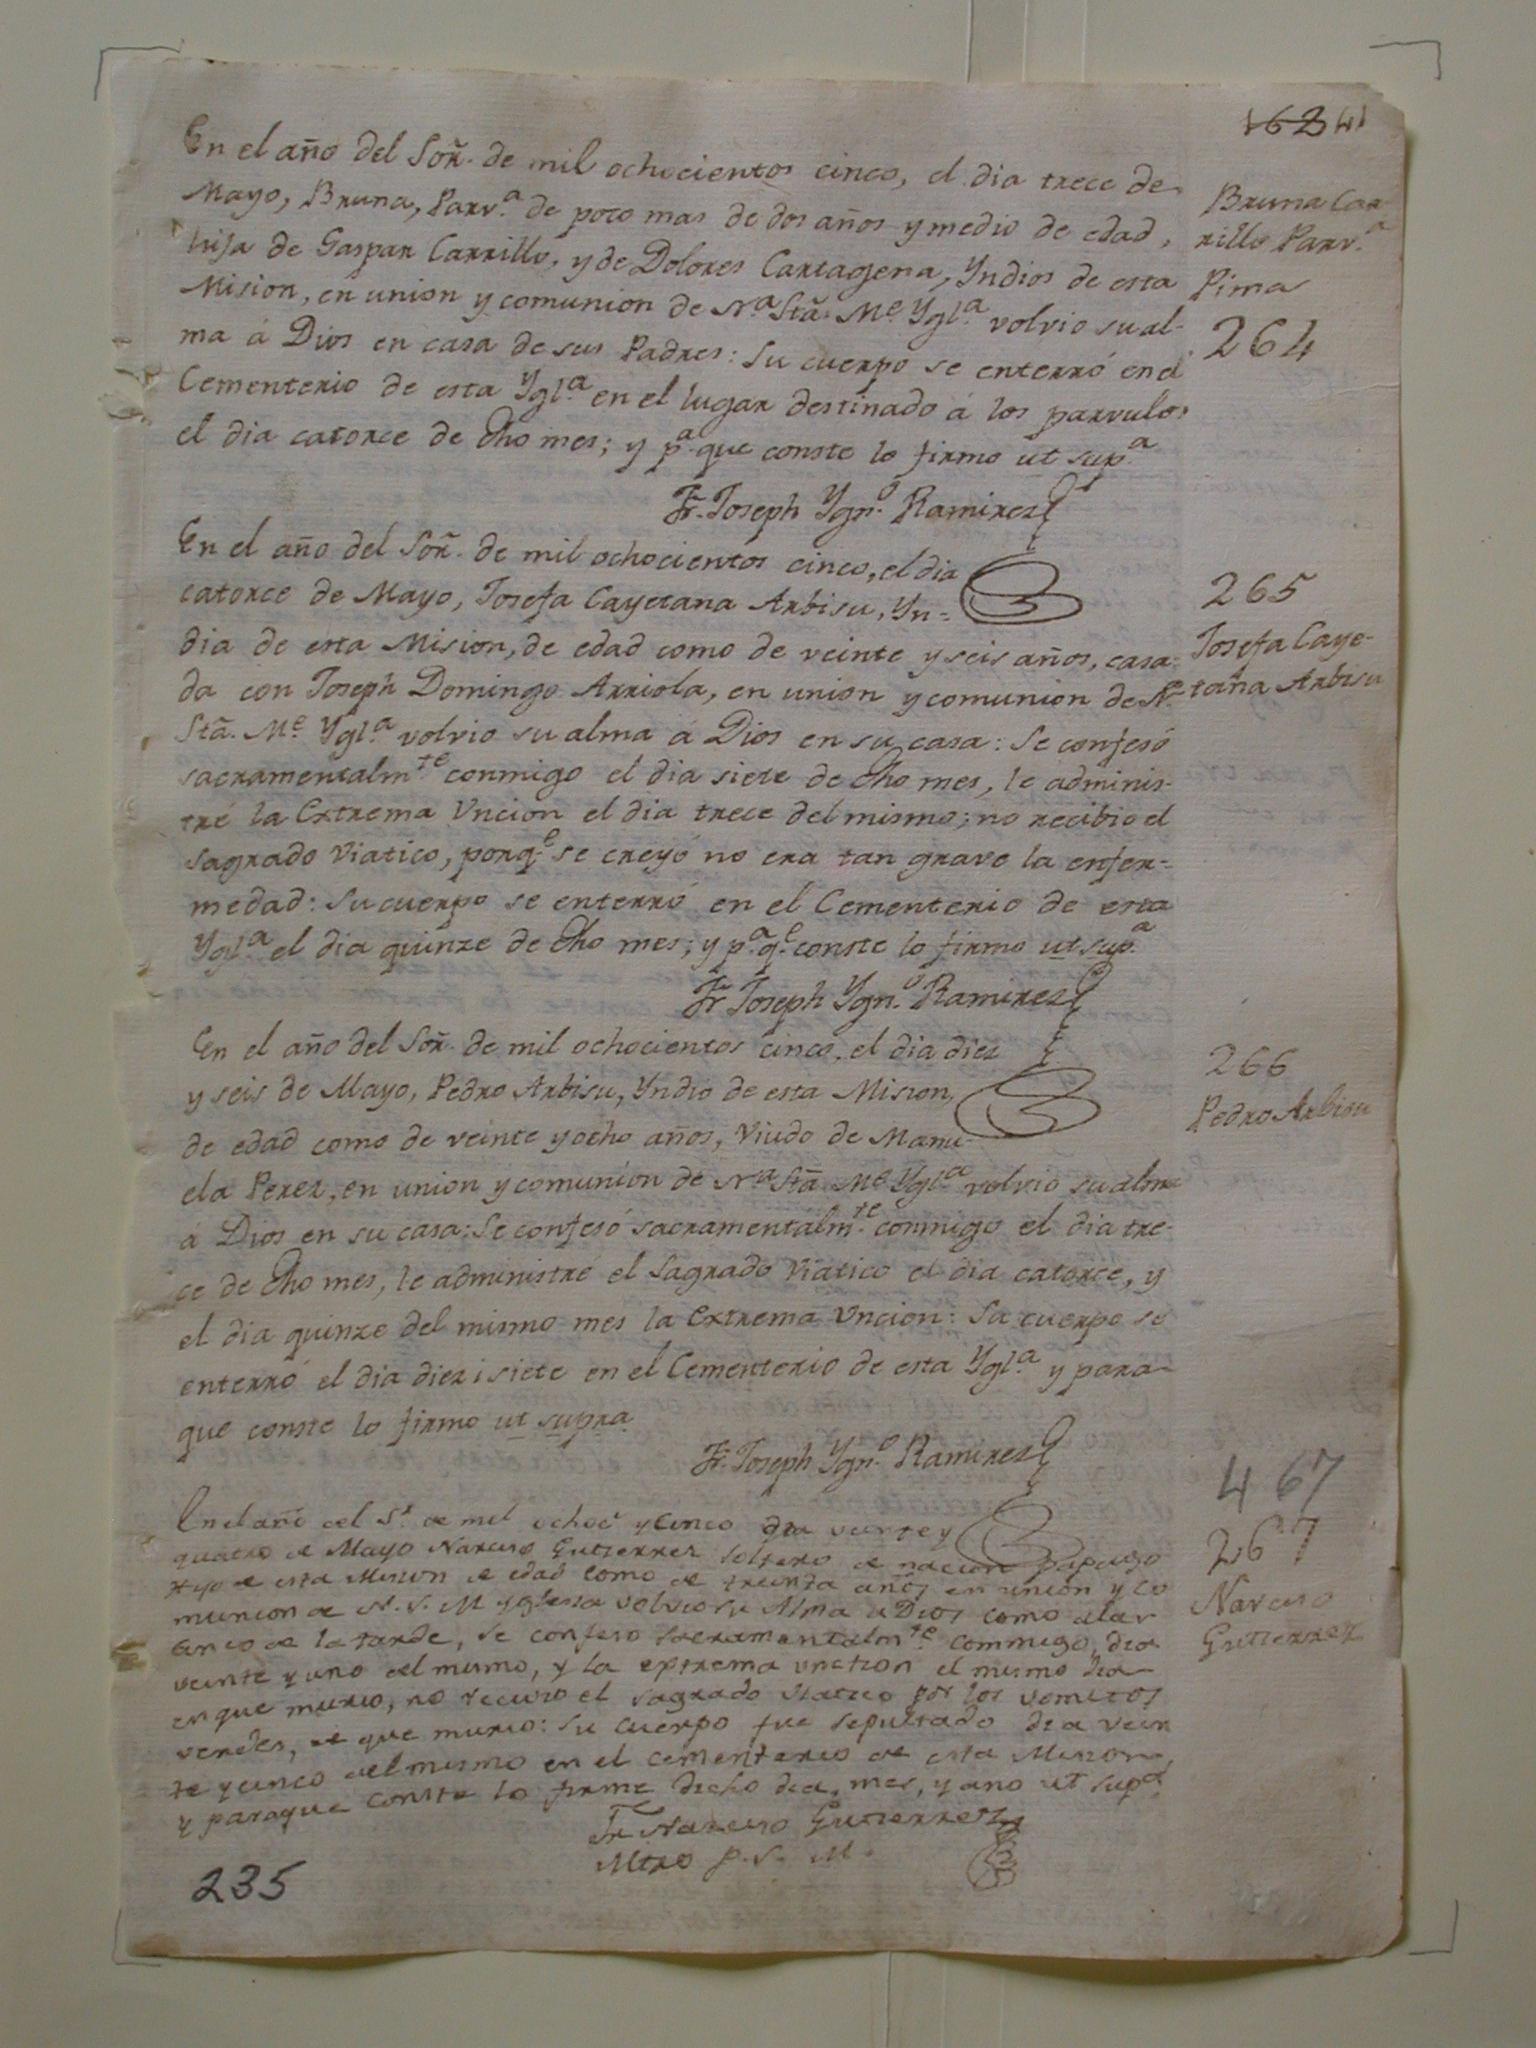 En el año del Sor̃. de mil ochocientos cinco, el dia trece de
Mayo, Bruna, Parv.ª de poco mas de dos años y medio de edad,
hija de Gaspar Carrillo, y de Dolores Cartagena, Yndios de esta
Mision, en union y comunion de N.ª Stã. M.e Ygl.ª volvio su al-
ma á Dios en casa de sus Padres: Su cuerpo se enterró en el
Cementerio de esta Ygl.ª en el lugar destinado á los parvulos
el dia catorce de dho mes; y p.ª que conste lo firmo ut sup.ª
Fr. Joseph Ygn.o Ramirez
Bruna Car-
rillo Parv.ª
Pima
264
En el año del Sor̃. de mil ochocientos cinco, el dia
catorce de Mayo, Josefa Cayetana Arbisu, Yn-
dia de esta Mision, de edad como de veinte y seis años, casa-
da con Joseph Domingo Arriola, en union y comunion de N.ª
Stã. M.e Ygl.ª volvio su alma á Dios en su casa: Se confesó
sacramentalm.te conmigo el dia siete de dho mes, le adminis-
tré la Extrema Vncion el dia trece del mismo; no recibio el
sagrado Viatico, porq.e se creyó no era tan grave la enfer-
medad: Su cuerpo se enterró en el Cementerio de esta
Ygl.ª el dia quinze de dho mes; y p.ª q.e conste lo firmo ut sup.ª
Fr. Joseph Ygn.o Ramirez
265
Josefa Caye-
tana Arbisu
En el año del Sor̃. de mil ochocientos cinco, el dia diez
y seis de Mayo, Pedro Arbisu, Yndio de esta Mision,
de edad como de veinte y ocho años, Viudo de Manu-
ela Perez, en union y comunion de N.ª Stã M.e Ygl.ª volvio su alma
á Dios en su casa: Se confesó sacramentalm.te conmigo el dia tre-
ce de dho mes, le administré el Sagrado Viatico el dia catorce, y
el dia quinze del mismo mes la Extrema Vncion: Su cuerpo se
enterró el dia diez i siete en el Cementerio de esta Ygl.ª y para
que conste lo firmo ut supra
Fr. Joseph Ygn.o Ramirez
266
Pedro Arbisu
En el año del S.r de mil ochoc y cinco dia veinte y
quatro de Mayo Narciso Gutierrez soltero de nacion papago
hijo de esta Mision de edad como de treinta años en union y co
munion de N. S. M Yglesia volvio su Alma a Dios como a las
cinco de la tarde, se confeso sacramentalm.te commigo dia
veinte y uno del mismo, y la extrema unction el mismo dia
en que murio, no recivio el sagrado viatico por los vomitos
verdes, de que murio: su cuerpo fue sepultado dia vein
te y cinco del mismo en el cementerio de esta Mision,
y paraque conste lo firme dicho dia, mes, y año ut sup.ª
Fr Narciso Gutierrez
Mtro p. S. M.
467
267
Narciso
Gutierrez
235